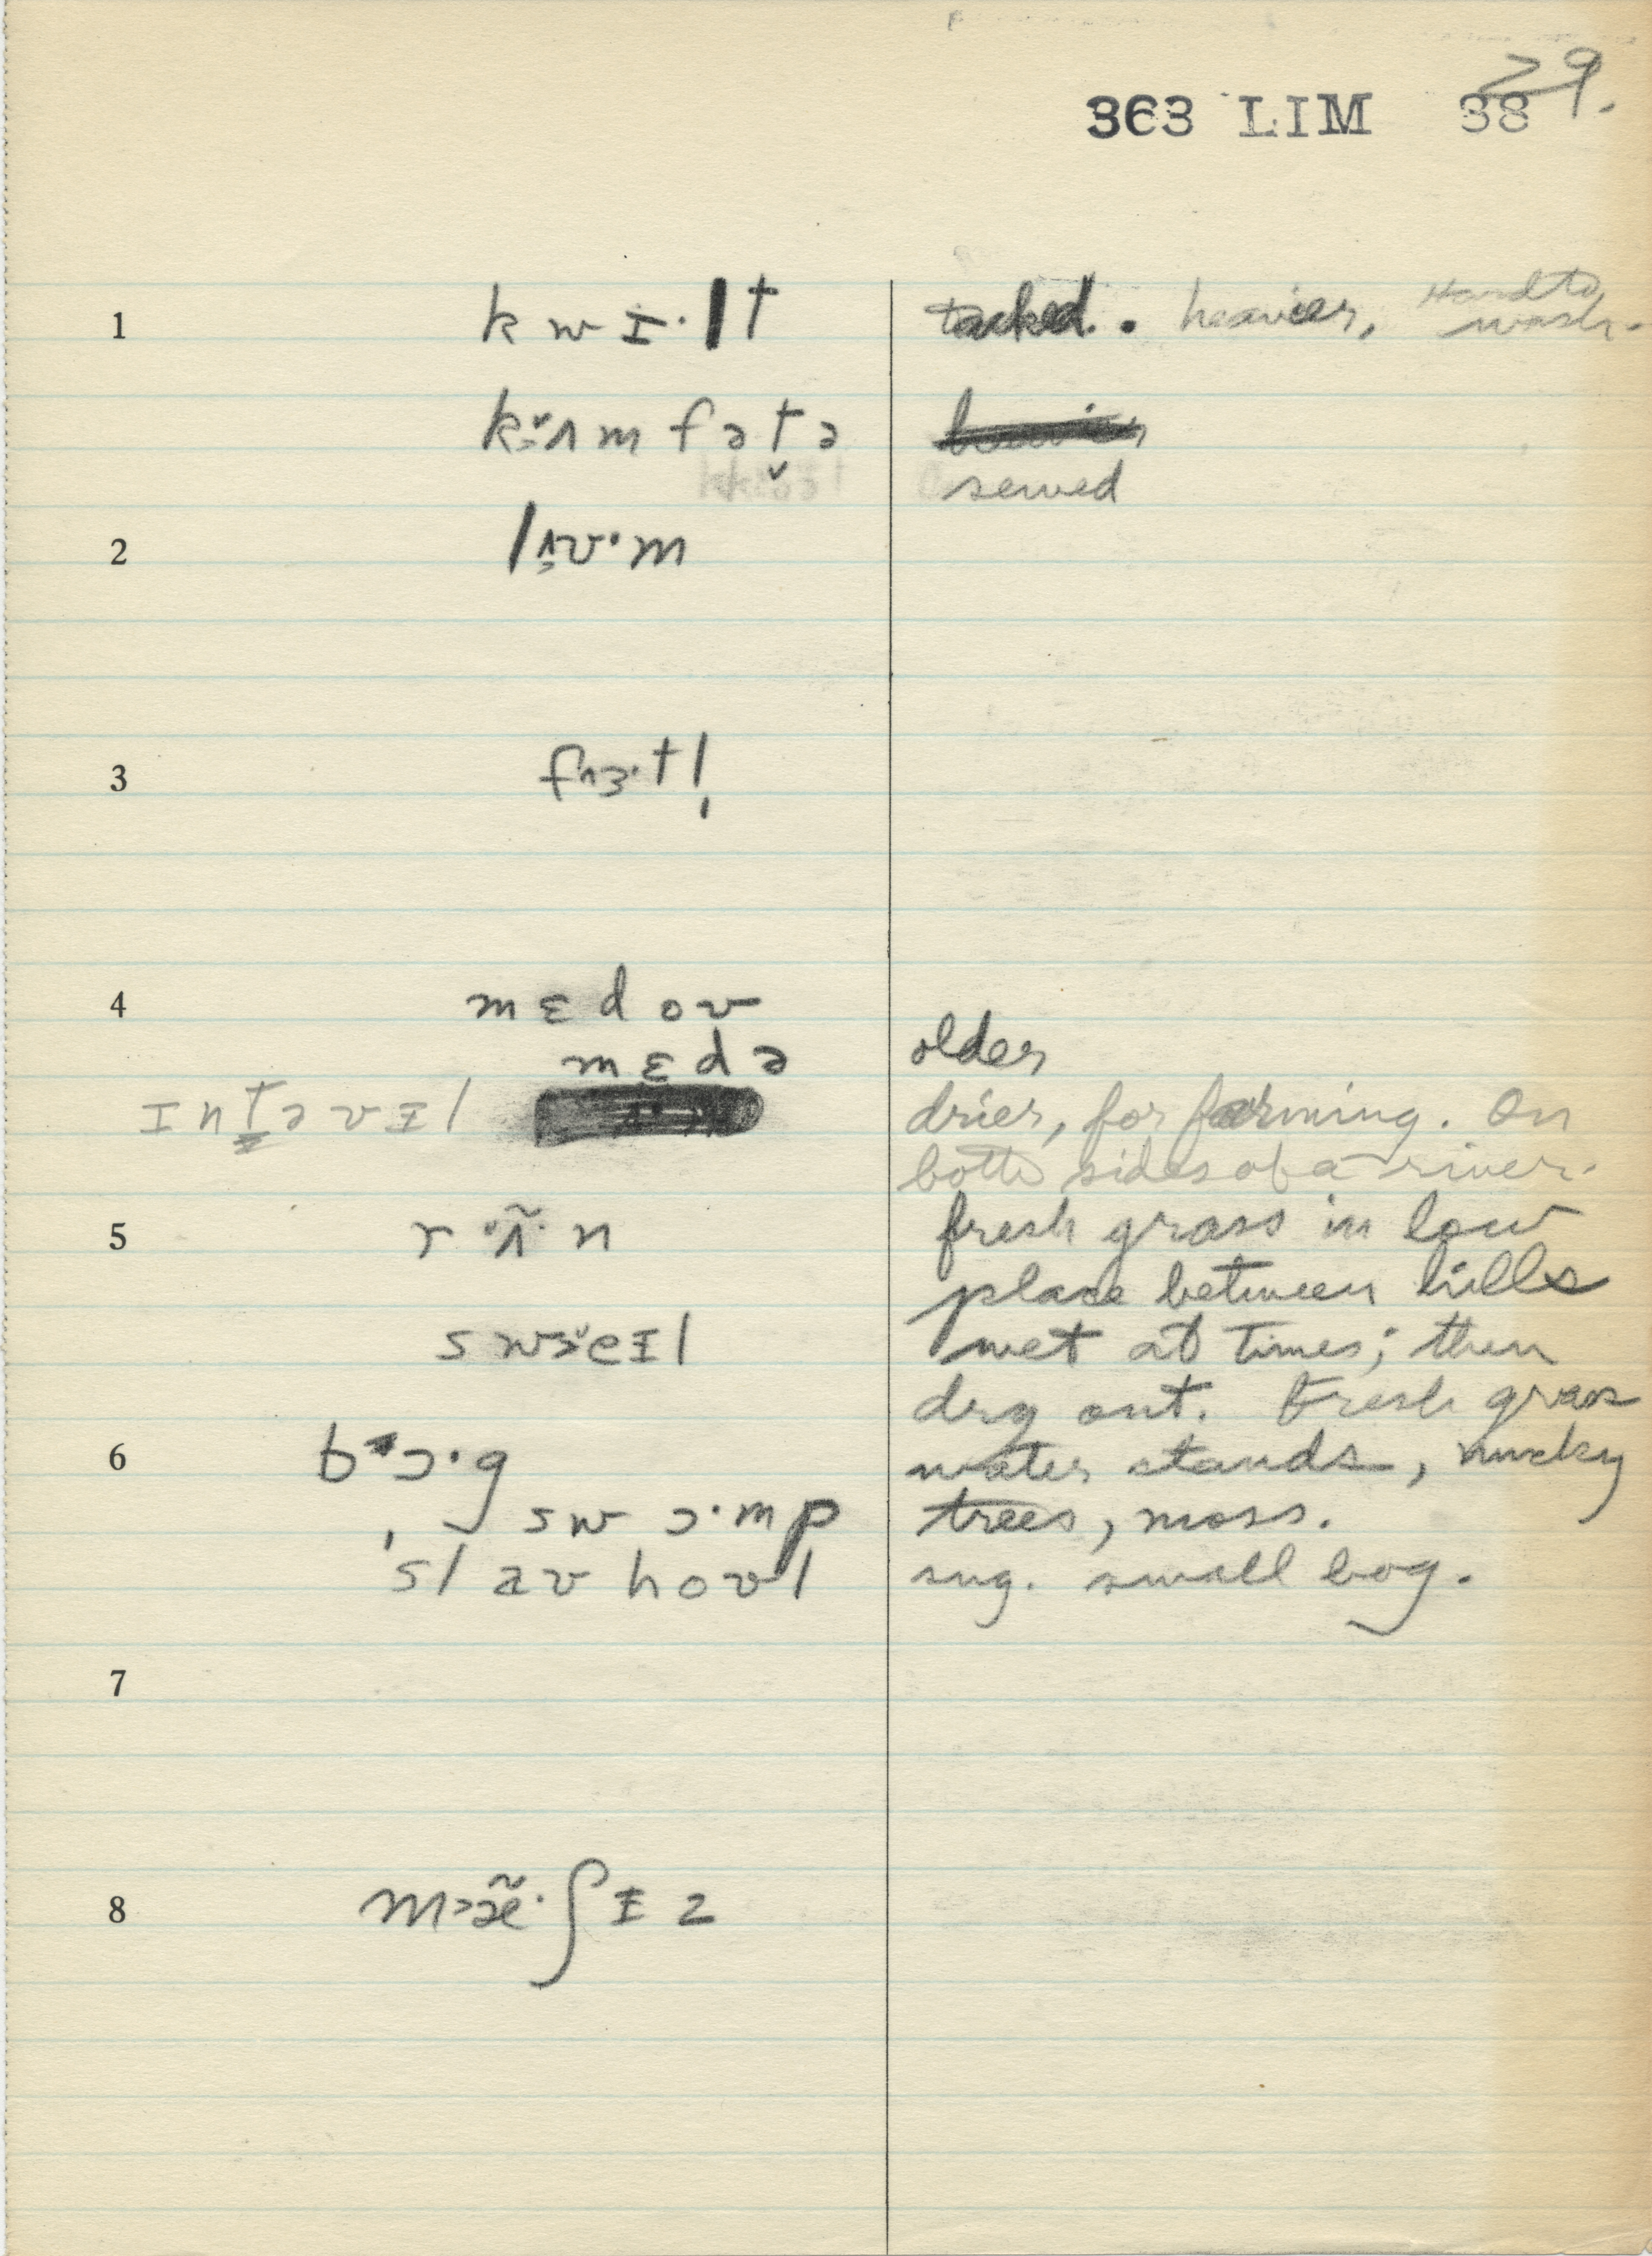 29.
363 LIM 38
1 kwɪ·lt tacked. heavier, Hard to wash.
kʌmfətə
sewed
2 lʌʊ·m
3 fɜ·tl̩
4 mɛdoʊ
mɛdə older
ɪntəvɪl drier, for farming. On
both sides of a river.
5 rʌ̃·n fresh grass in low
place between hills
sweɪl wet at times; then
dry out. Fresh grass
6 bɔ·g water stands, mucky
swɔ·mp trees, moss.
'slaʊhoʊl sug. small bog.
7
8 mæ̃·ʃɪz